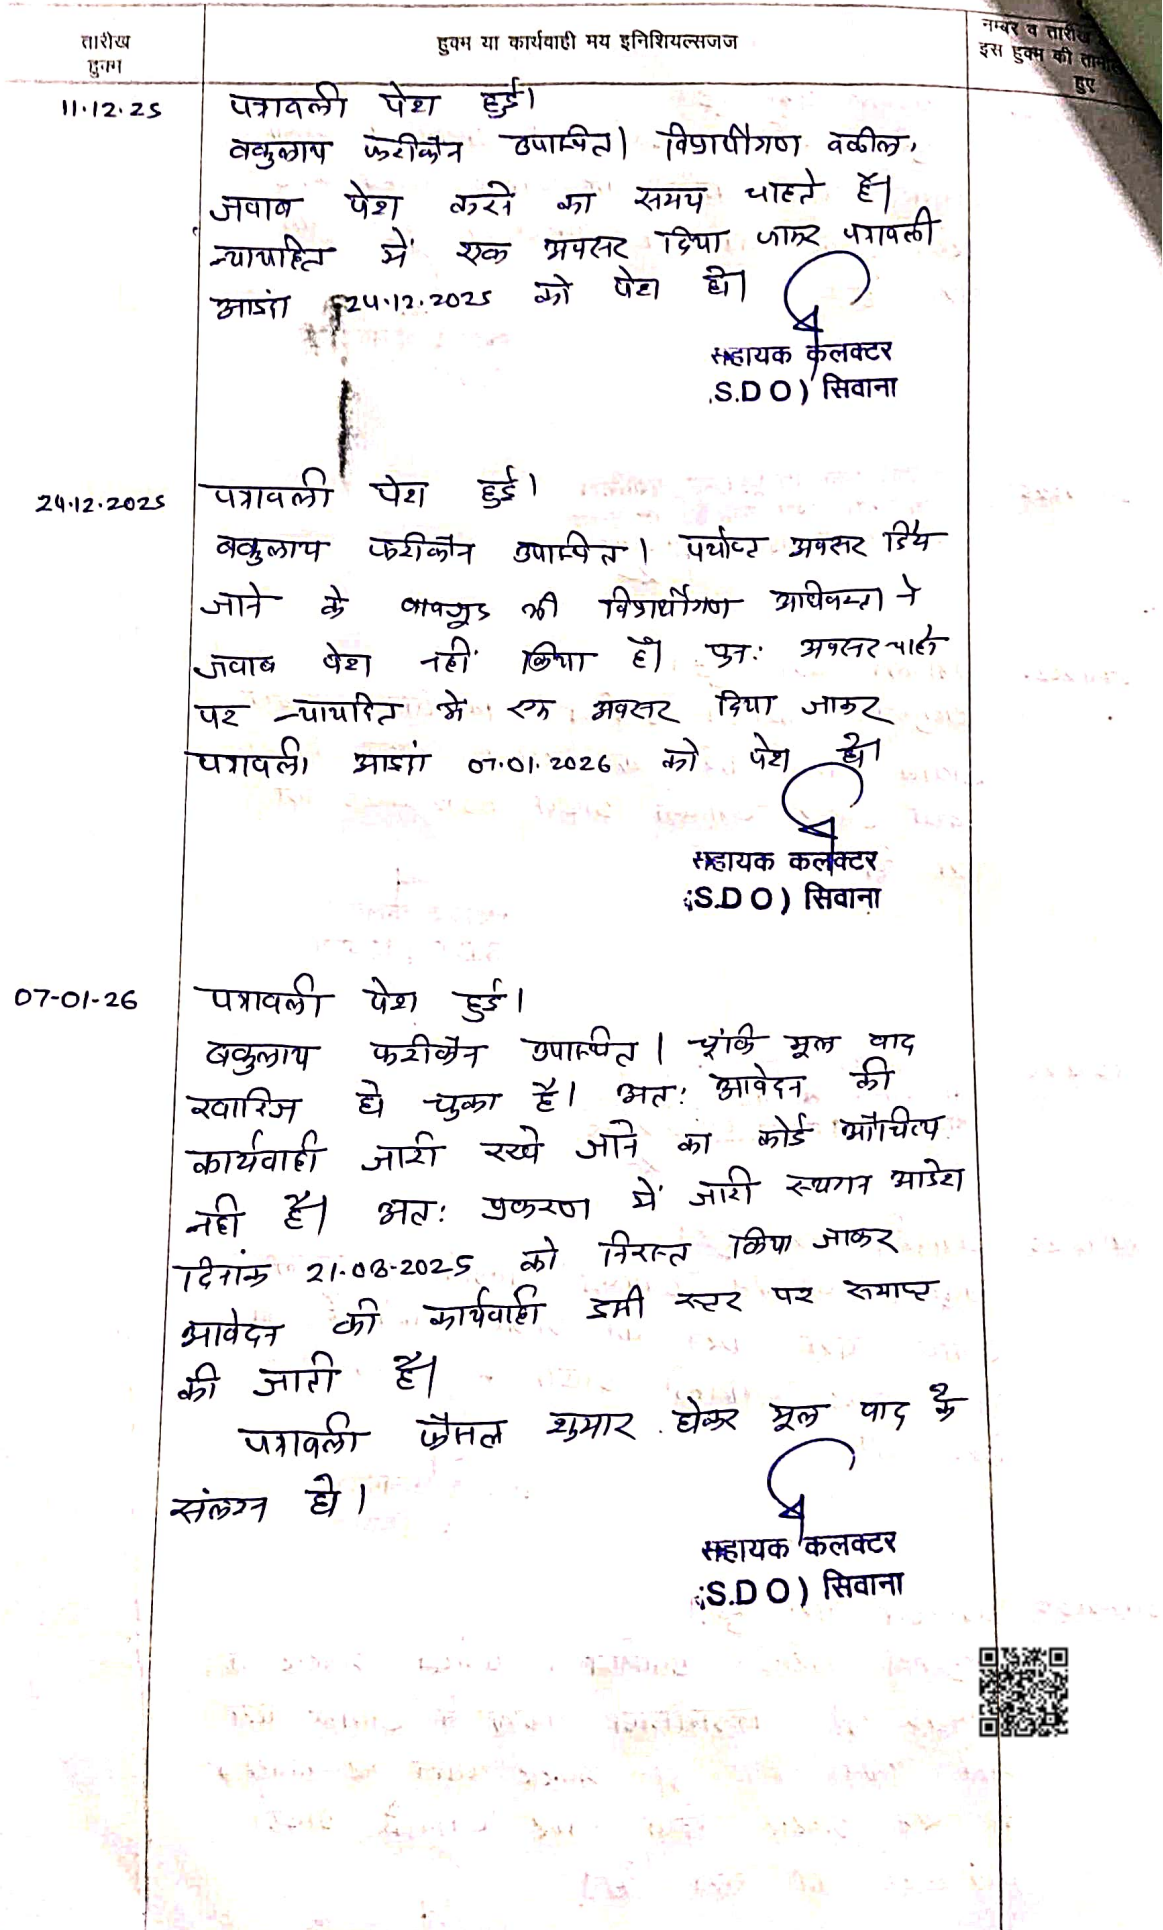 तारीख
हुक्म
हुक्म या कार्यवाही मय इनिशियल्सजज
नम्बर व तारीख
इस हुक्म की तामील
हुए
11.12.25
पत्रावली पेश हुई।
वकुलाय फरीकैन उपस्थित। विप्रार्थीगण वकील
जवाब पेश करने का समय चाहते है।
न्यायहित में एक अवसर दिया जाकर पत्रावली
आइंदा 24.12.2025 को पेश हो।
सहायक कलक्टर
S.D O) सिवाना
24.12.2025
पत्रावली पेश हुई।
वकुलाय फरीकैन उपस्थित। पर्याप्त अवसर दिये
जाने के बावजूद भी विप्रार्थीगण अधिवक्ता ने
जवाब पेश नहीं किया है। पुन: अवसर चाहने
पर न्यायहित में एक अवसर दिया जाकर
पत्रावली आइंदा 07.01.2026 को पेश हो।
सहायक कलक्टर
(S.D O) सिवाना
07-01-26
पत्रावली पेश हुई।
वकुलाय फरीकैन उपस्थित। चूंकि मूल वाद
खारिज हो चुका है। अत: आवेदन की
कार्यवाही जारी रखे जाने का कोई औचित्य
नही है। अत: प्रकरण में जारी स्थगन आदेश
दिनांक 21-08-2025 को निरस्त किया जाकर
आवेदन की कार्यवाही इसी स्टर पर समाप्त
की जाती है।
पत्रावली फैसल शुमार होकर मूल वाद के
संलग्न हो।
सहायक कलक्टर
(S.D O) सिवाना